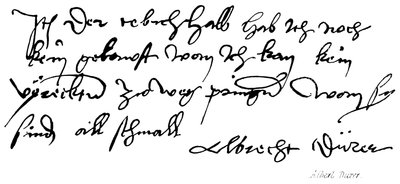 Itz der rebichhalb hab ich noch
kein gekawft wan ich kan kein
zw weg pringen wan sy
sind all schmall
Albrecht Dürer
Albert Durer